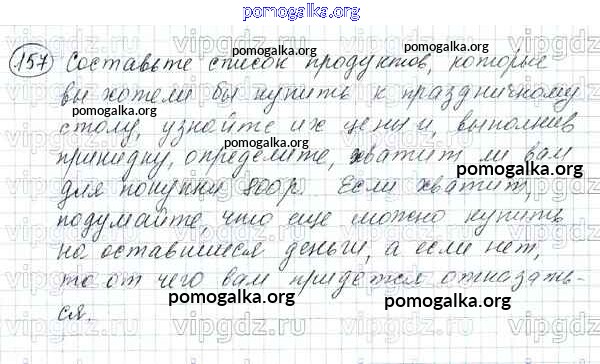 pomogalka.org
157 Составьте список продуктов, которые
вы хотели бы купить к праздничному
столу, узнайте их цены и, выполнив
прикидку, определите, хватит ли вам
для покупки 800р. Если хватит,
подумайте, что еще можно купить
на оставшиеся деньги, а если нет,
то от чего вам придется отказать-
ся.
pomogalka.org
pomogalka.org
pomogalka.org
pomogalka.org
pomogalka.org
pomogalka.org
pomogalka.org